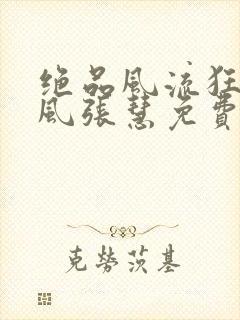 绝品风流狂
风张慧免费
克劳茨基